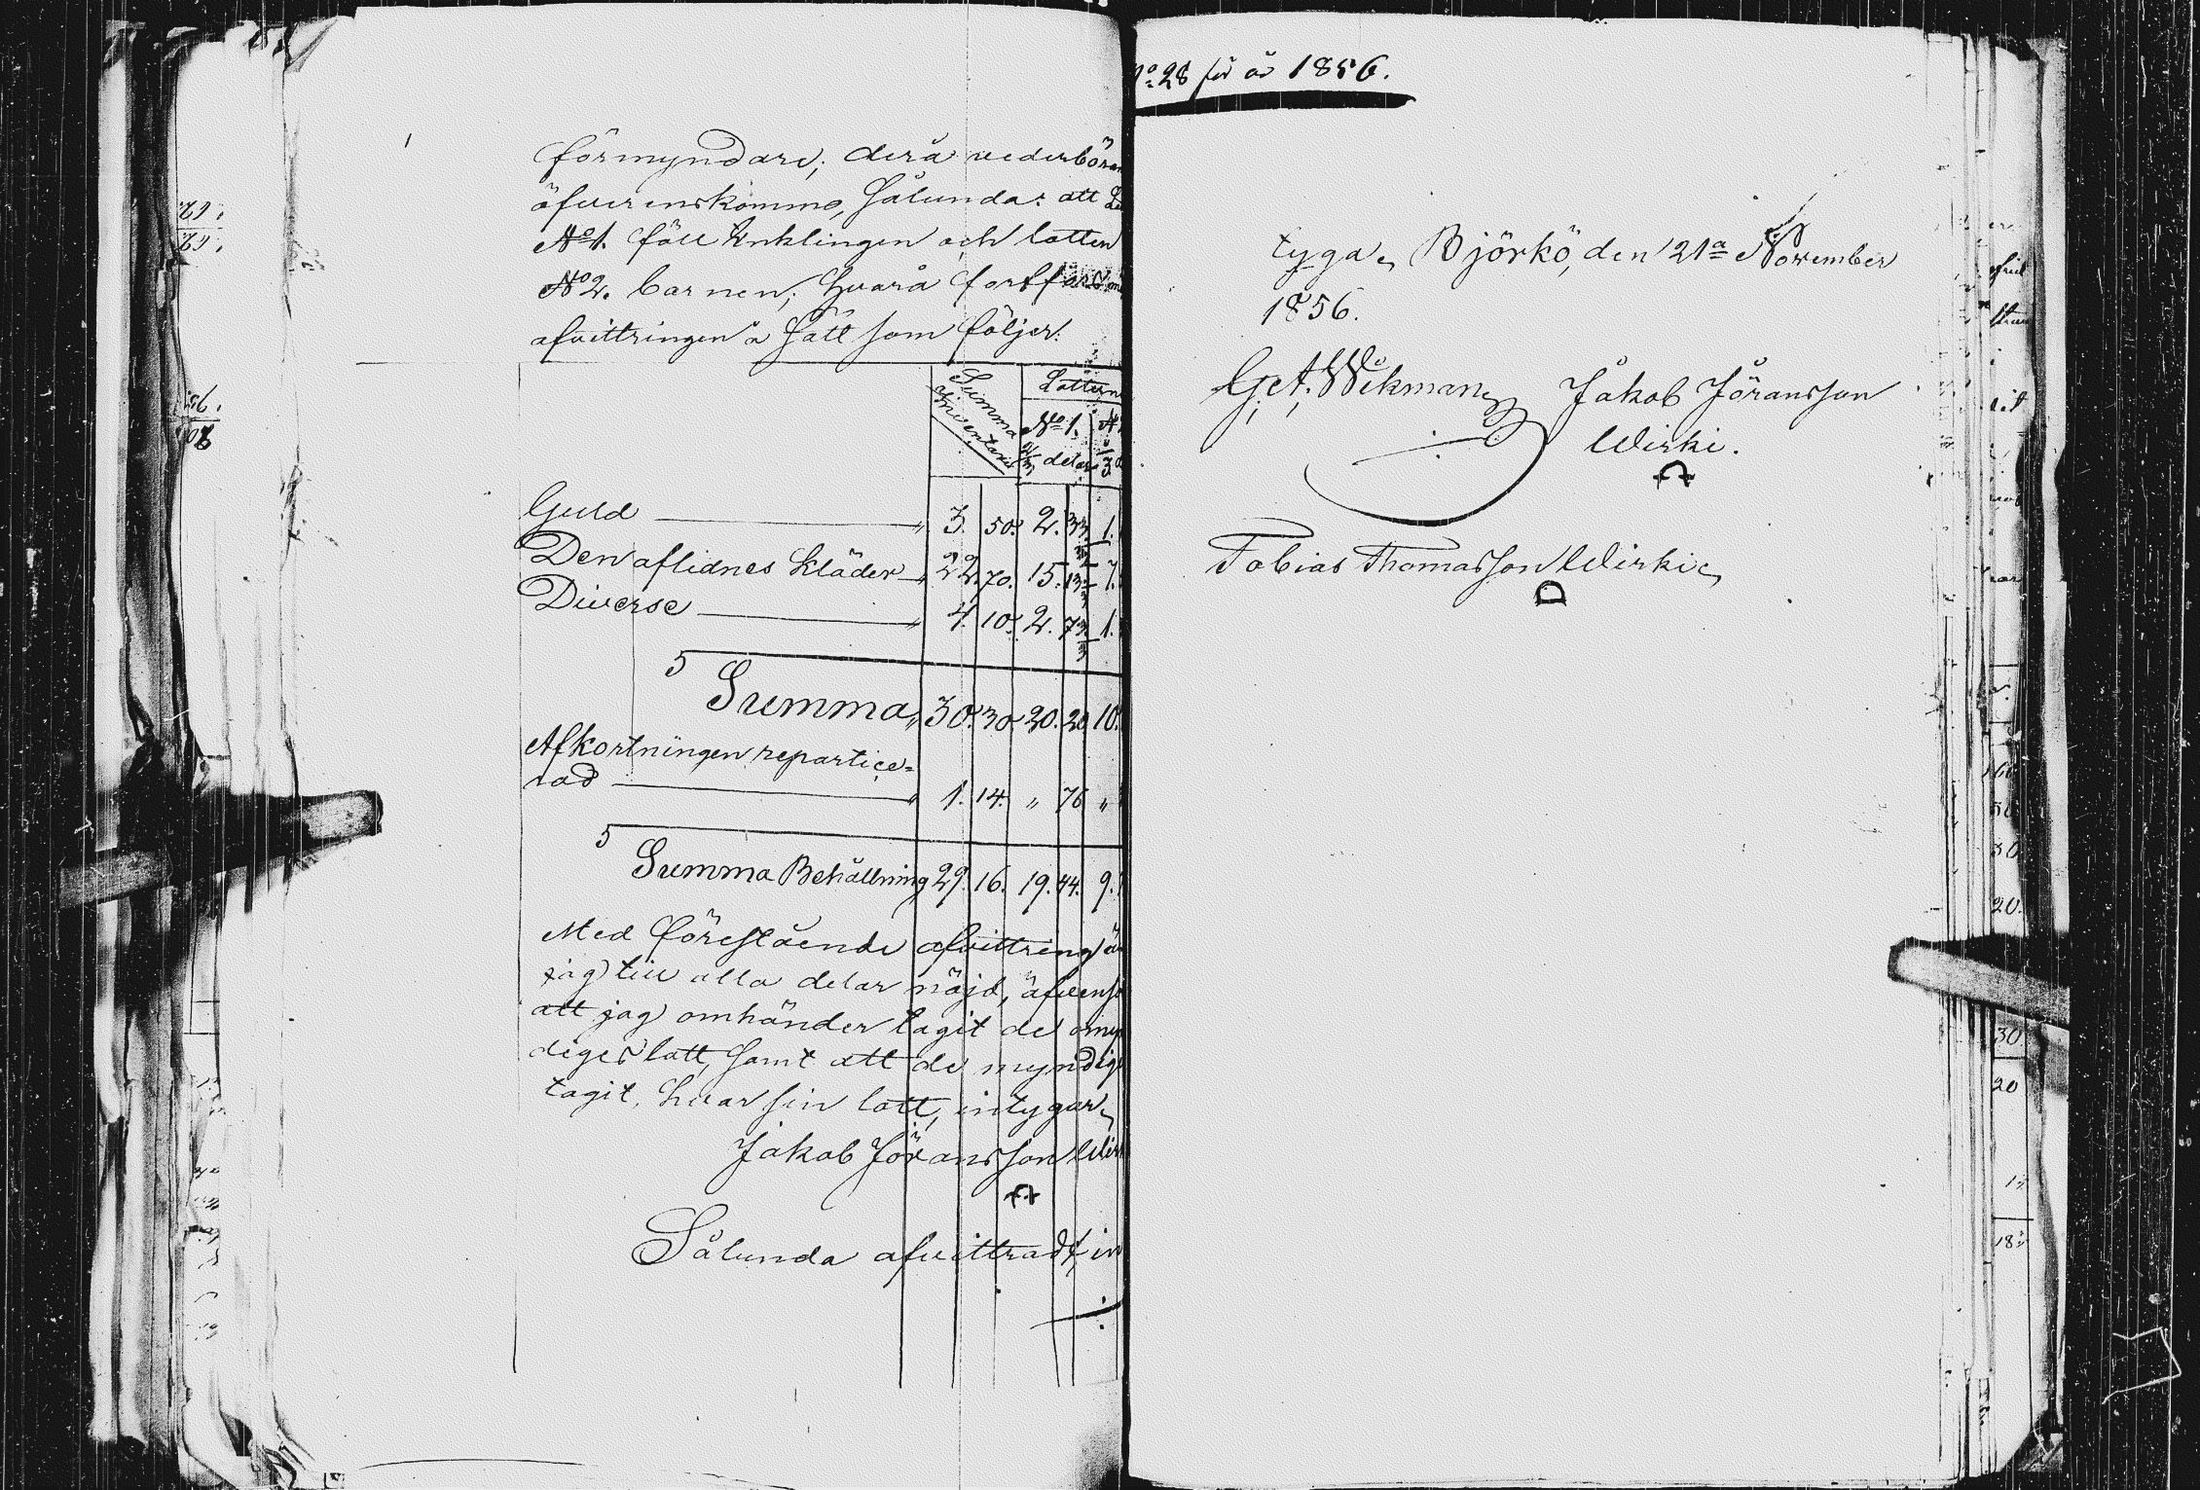 förmyndare, derå vederbören
öfverenskommo, Sålunda: att
No 1. föll Enklingen och lotten
No 2. barnen; hvarå fortfor
afvittringen å sätt som följer.
Summa Inventarii Lotterne
No 1. 2/3 delar 1/3
Guld " 3. 50. 2. 33 1/3 1.
Den aflidnes kläder " 22. 70. 15. 13 1/3 7.
Diverse " 4. 10. 2. 73 1/3 1.
S Summa " 30. 30. 20. 20 10.
Afkortningen repartice=
rad " 1. 14. " 76 "
S Summa Behållning 29. 16. 19. 44. 9.
Med föreslående afvittring är
jag till alla delar nöjd, äfvenso
att jag omhänder tagit de omyn
diges lott, samt att de myndige
tagit hvar sin lott, intygar,
Jakob Jöransson Wirk
Sålunda afvittradt, in
No 28 för år 1856.
tyga, Björkö, den 21a November
1856.
Get. Wikman Jakob Jöransson
Wirki.
Tobias Thomasson Wirki